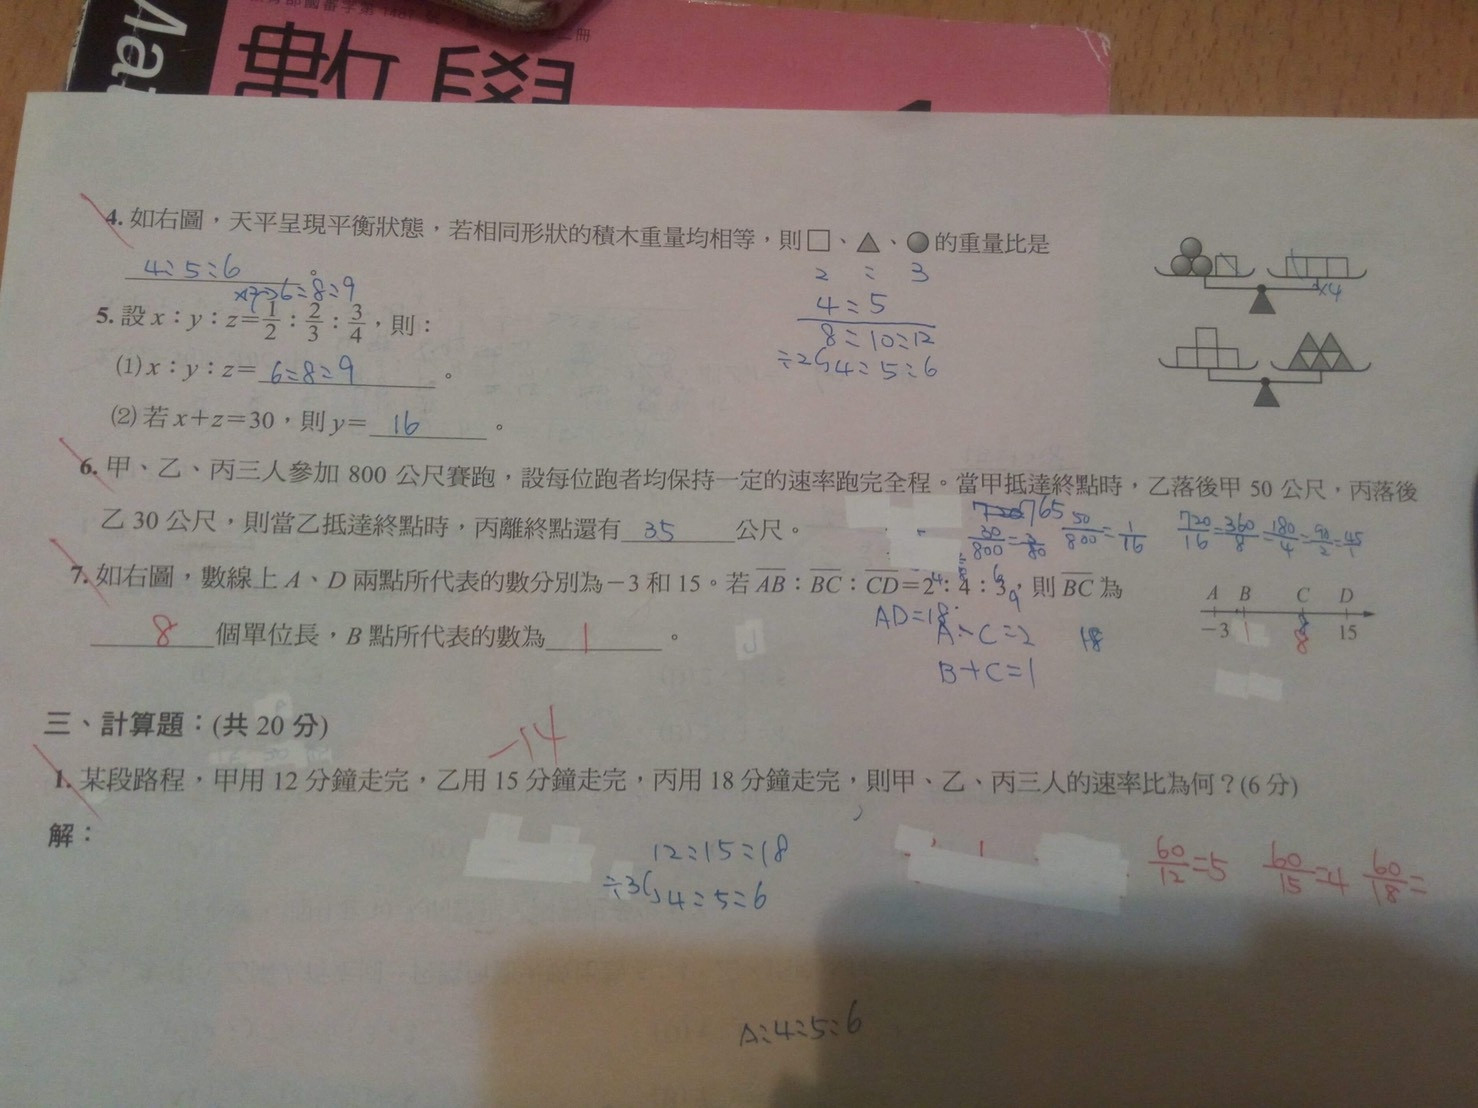 Mat
數學
4. 如右圖，天平呈現平衡狀態，若相同形狀的積木重量均相等，則□、▲、●的重量比是
4:5:6。
2 : 3
4:5
8:10:12
÷2 4:5:6
×4
6:8:9
5. 設 x：y：z=1/2：2/3：3/4，則：
(1) x：y：z= 6:8:9 。
(2) 若 x+z=30，則 y= 16 。
6. 甲、乙、丙三人參加 800 公尺賽跑，設每位跑者均保持一定的速率跑完全程。當甲抵達終點時，乙落後甲 50 公尺，丙落後
乙 30 公尺，則當乙抵達終點時，丙離終點還有 35 公尺。
765
30/800=3/80 50/800=1/16 720/16=360/8=180/4=90/2=45/1
7. 如右圖，數線上 A、D 兩點所代表的數分別為−3 和 15。若 AB：BC：CD=2：4：3，則 BC 為
8 個單位長，B 點所代表的數為 1 。
AD=18
A÷C=2 18
B+C=1
A B C D
−3 1 8 15
三、計算題：(共 20 分)
-14
1. 某段路程，甲用 12 分鐘走完，乙用 15 分鐘走完，丙用 18 分鐘走完，則甲、乙、丙三人的速率比為何？(6 分)
解：
12:15:18
÷3 4:5:6
60/12=5 60/15=4 60/18=
A:4:5:6